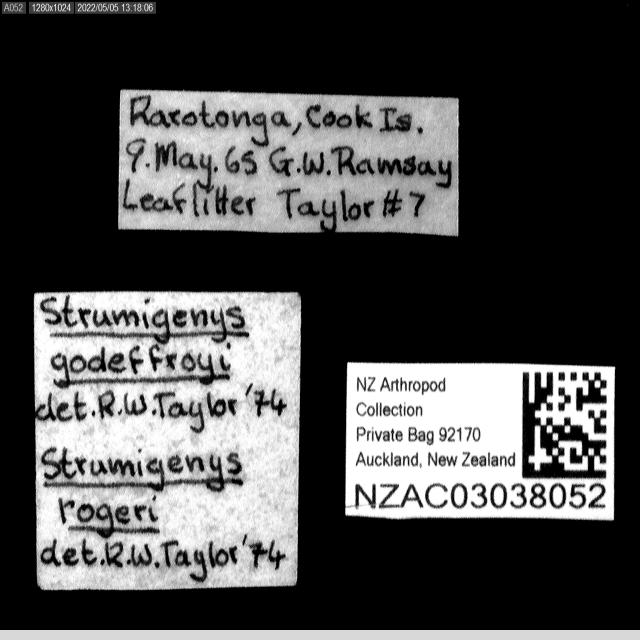 A052 1280x1024 2022/05/05 13:18:06
Rarotonga, Cook Is.
9. May. 65 G.W. Ramsay
Leaflitter Taylor # 7
Strumigenys
godeffroyi
det. R.W. Taylor '74
Strumigenys
rogeri
det. R.W. Taylor '74
NZ Arthropod
Collection
Private Bag 92170
Auckland, New Zealand
NZAC03038052